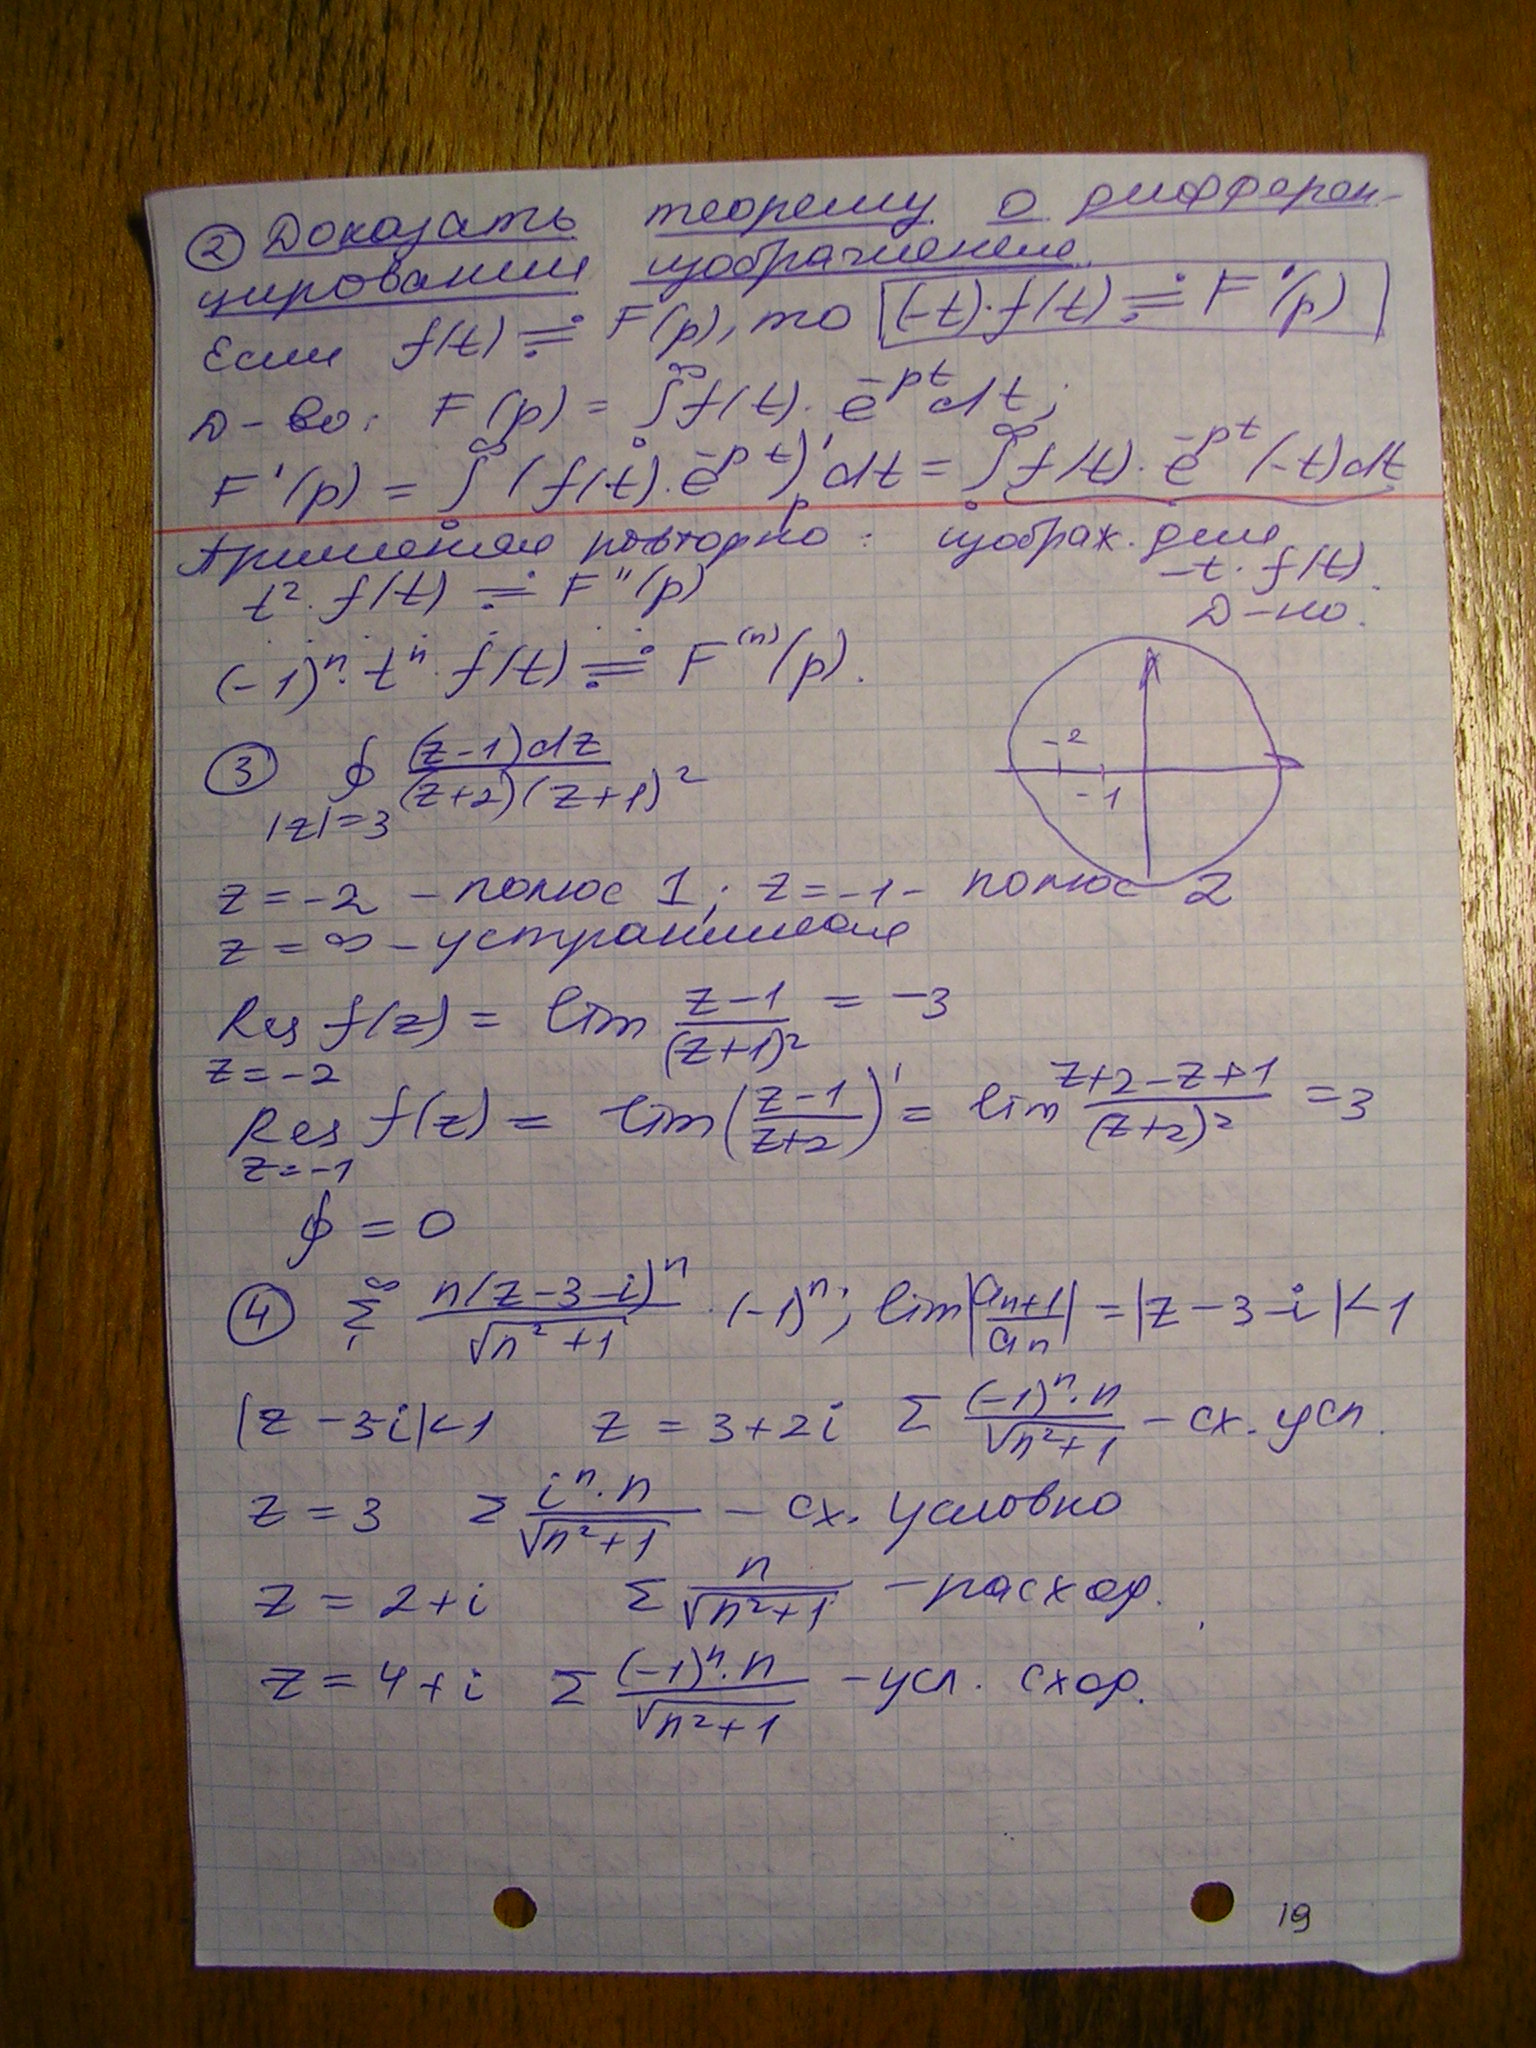 ② Доказать теорему о дифферен-
цировании изображения.
Если f(t) ≓ F(p), то (-t)·f(t) ≓ F'(p)
Д-во: F(p) = ∫₀^∞ f(t)·e^{-pt}dt;
F'(p) = ∫₀^∞ (f(t)·e^{-pt})'_p dt = ∫₀^∞ f(t)·e^{-pt}(-t)dt
Применяя повторно: изображ. для
t²·f(t) ≓ F''(p) -t·f(t).
Д-но.
(-1)^n·t^n·f(t) ≓ F^{(n)}(p).
③ ∮_{|z|=3} (z-1)dz / (z+2)(z+1)²
-2
-1
z = -2 – полюс 1; z = -1 – полюс 2
z = ∞ – устранимая
Res_{z=-2} f(z) = lim (z-1)/(z+1)² = -3
Res_{z=-1} f(z) = lim ((z-1)/(z+2))' = lim (z+2-z+1)/(z+2)² = 3
∮ = 0
④ Σ₁^∞ n(z-3-i)^n/√(n²+1) · (-1)^n; lim|a_{n+1}/a_n| = |z-3-i|<1
|z-3i|<1 z = 3+2i Σ (-1)^n·n/√(n²+1) – сх. усл.
z = 3 Σ i^n·n/√(n²+1) – сх. условно
z = 2+i Σ n/√(n²+1) – расход.
z = 4+i Σ (-1)^n·n/√(n²+1) – усл. сход.
19